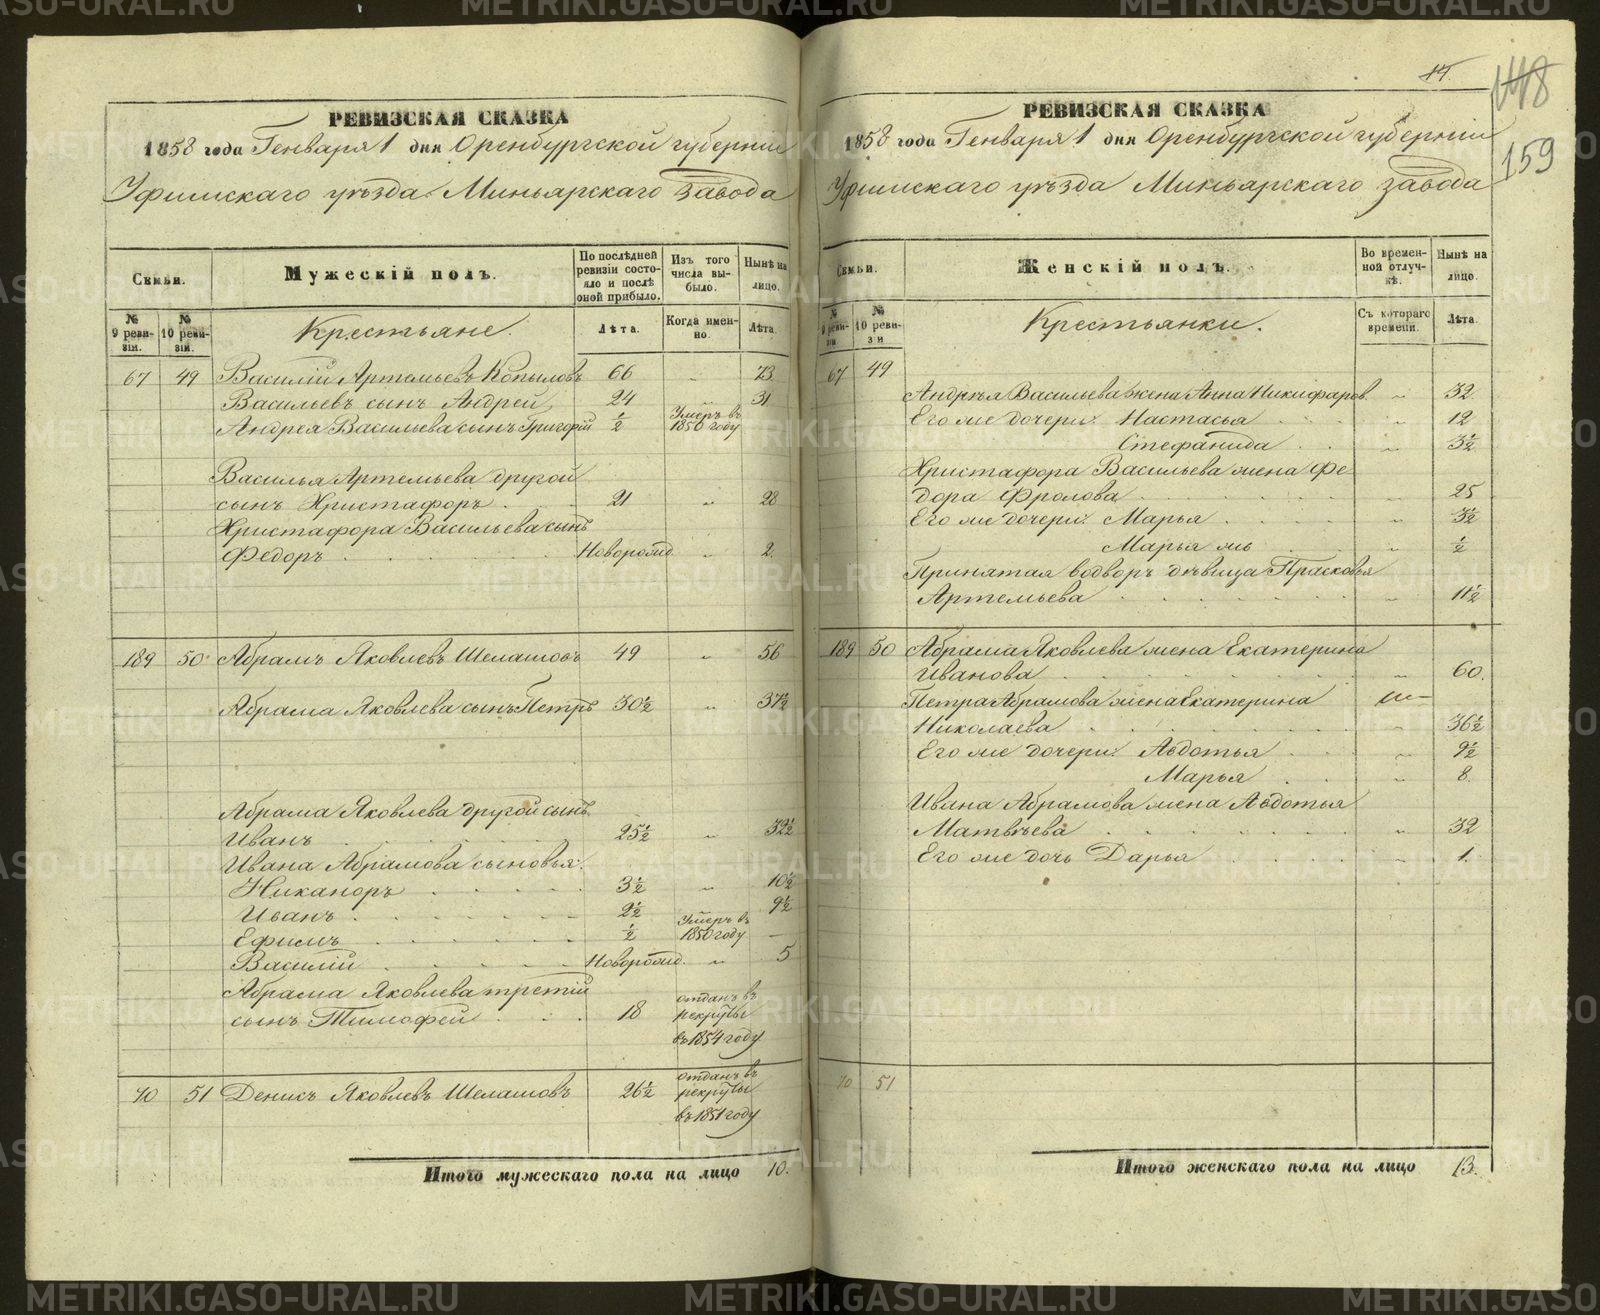 РЕВИЗСКАЯ СКАЗКА
1858 года Генваря 1 дня Оренбургской губерніи
Уфимскаго уѣзда Миньярскаго завода
Семьи.
Мужескій полъ.
По послѣдней ревизіи состояло и послѣ оной прибыло.
Изъ того числа выбыло.
Нынѣ на лицо.
№ 9 ревизіи.
№ 10 ревизіи.
Крестьяне.
Лѣта.
Когда именно.
Лѣта.
67 49 Василій Артемьевъ Копыловъ 66 „ 73
Васильевъ сынъ Андрей 24 „ 31
Андрея Васильева сынъ Григорій ½ Умеръ въ 1850 году
Василья Артемьева другой
сынъ Христафоръ 21 „ 28
Христафора Васильева сынъ
Федоръ Новорожд. „ 2
189 50 Абрамъ Яковлевъ Шелашовъ 49 „ 56
Абрама Яковлева сынъ Петръ 30½ „ 37½
Абрама Яковлева другой сынъ
Иванъ 25½ „ 32½
Ивана Абрамова сыновья:
Никаноръ 3½ „ 10½
Иванъ 2½ 9½
Ефимъ ½ Умеръ въ 1850 году —
Василій Новорожд. „ 5
Абрама Яковлева третій
сынъ Тимофей 18 отданъ въ рекруты въ 1854 году
70 51 Денисъ Яковлевъ Шелашовъ 26½ отданъ въ рекруты въ 1851 году
Итого мужескаго пола на лицо 10.
14.
148
159
РЕВИЗСКАЯ СКАЗКА
1858 года Генваря 1 дня Оренбургской губерніи
Уфимскаго уѣзда Миньярскаго завода
Семьи.
Женскій полъ.
Во временной отлучкѣ.
Нынѣ на лицо.
№ 9 ревизіи
№ 10 ревизи
Крестьянки.
Съ котораго времени.
Лѣта.
67 49
Андрѣя Васильева жена Анна Никифаров. „ 32
Его же дочери: Настасья „ 12
Стефанида „ 3½
Христафора Васильева жена Фе
дора Фролова „ 25
Его же дочери: Марья „ 3½
Марья жъ „ ½
Принятая во дворъ дѣвица Прасковья
Артемьева „ 11½
189 50 Абрама Яковлева жена Екатерина
Иванова „ 60.
Петра Абрамова жена Екатерина
Николаева „ 36½
Его же дочери: Авдотья „ 9½
Марья „ 8.
Ивана Абрамова жена Авдотья
Матвѣева „ 32
Его же дочь Дарья „ 1.
70 51
Итого женскаго пола на лицо 13.
METRIKI.GASO-URAL.RU